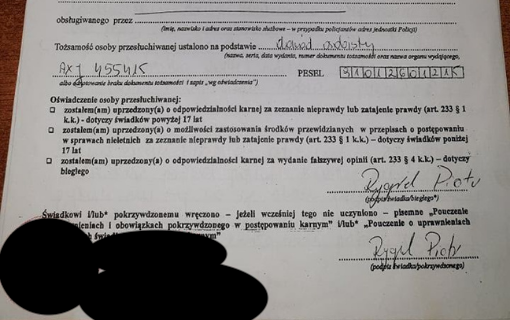 obsługiwanego przez
(imię, nazwisko i adres oraz stanowisko służbowe – w przypadku policjantów adres jednostki Policji)
Tożsamość osoby przesłuchiwanej ustalono na podstawie dowód osobisty
(nazwa, seria, data wydania, numer dokumentu tożsamości oraz nazwa organu wydającego,
PESEL
albo odnotowanie braku dokumentu tożsamości i zapis „wg oświadczenia”)
Oświadczenie osoby przesłuchiwanej:
zostałem(am) uprzedzony(a) o odpowiedzialności karnej za zeznanie nieprawdy lub zatajenie prawdy (art. 233 § 1
k.k.) - dotyczy świadków powyżej 17 lat
zostałem(am) uprzedzony(a) o możliwości zastosowania środków przewidzianych w przepisach o postępowaniu
w sprawach nieletnich za zeznanie nieprawdy lub zatajenie prawdy (art. 233 § 1 k.k.) – dotyczy świadków poniżej
17 lat
zostałem(am) uprzedzony(a) o odpowiedzialności karnej za wydanie fałszywej opinii (art. 233 § 4 k.k.) – dotyczy
biegłego
Piotr
(podpis świadka/biegłego*)
Świadkowi i/lub* pokrzywdzonemu wręczono – jeżeli wcześniej tego nie uczyniono – pisemne „Pouczenie
i obowiązkach pokrzywdzonego w postępowaniu karnym” i/lub* „Pouczenie o uprawnieniach
Piotr
(podpis świadka/pokrzywdzonego)